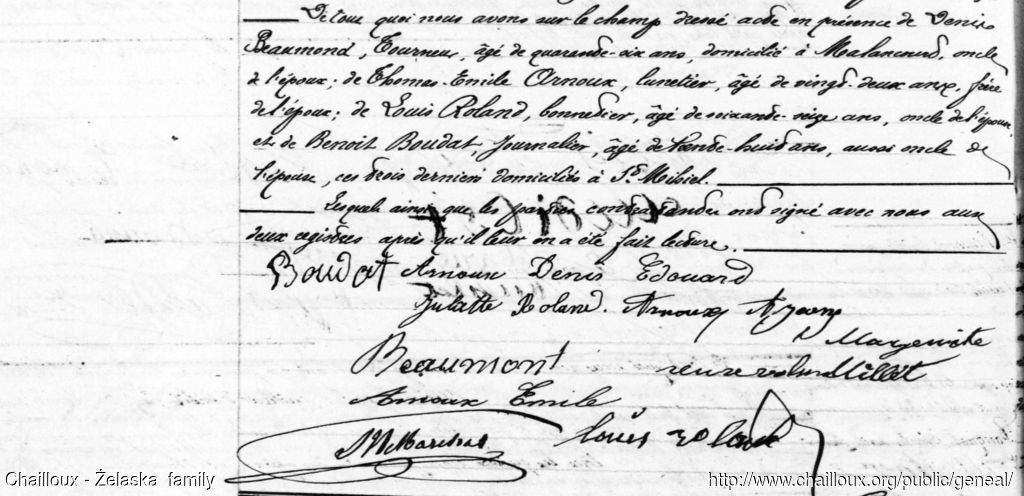 De tout quoi nous avons sur le champ dressé acte en présence de Denis
Beaumond, Tourneur, âgé de quarante-six ans, domicilié à Malancourt, oncle
de l'époux; de Thomas Emile Arnoux, lunetier, âgé de vingt-deux ans, frère
de l'époux; de Louis Roland, bonnetier, âgé de soixante-seize ans, oncle de l'épouse
et de Benoit Boudat, Journalier, âgé de trente-huit ans, aussi oncle de
l'épouse, ces trois derniers domiciliés à St Mihiel.
Lesquels ainsi que les parties contractantes ont signé avec nous aux
deux registres après qu'il leur en a été fait lecture.
Boudat Arnoux Denis Edouard
Juliette Roland. Arnoux
Marguerite
Beaumont veuve Millet
Arnoux Emile
Louis Roland
Chailloux - Żelaska family
http://www.chailloux.org/public/geneal/